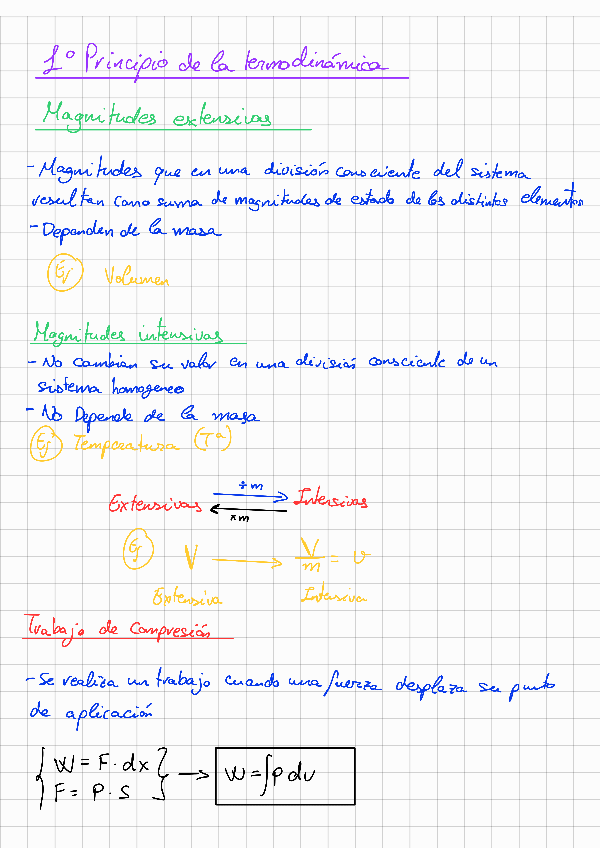 1º Principio de la termodinámica
Magnitudes extensivas
- Magnitudes que en una división consciente del sistema
resultan como suma de magnitudes de estado de los distintos elementos
- Dependen de la masa
Ej Volumen
Magnitudes intensivas
- No cambian su valor en una división consciente de un
sistema homogeneo
- No Depende de la masa
Ej Temperatura (Tª)
÷m
Extensivas Intensivas
×m
Ej V → V/m = v
Extensiva Intensiva
Trabajo de Compresión
- Se realiza un trabajo cuando una fuerza desplaza su punto
de aplicación
W = F · dx
F = P · S
→ W = ∫ p dv